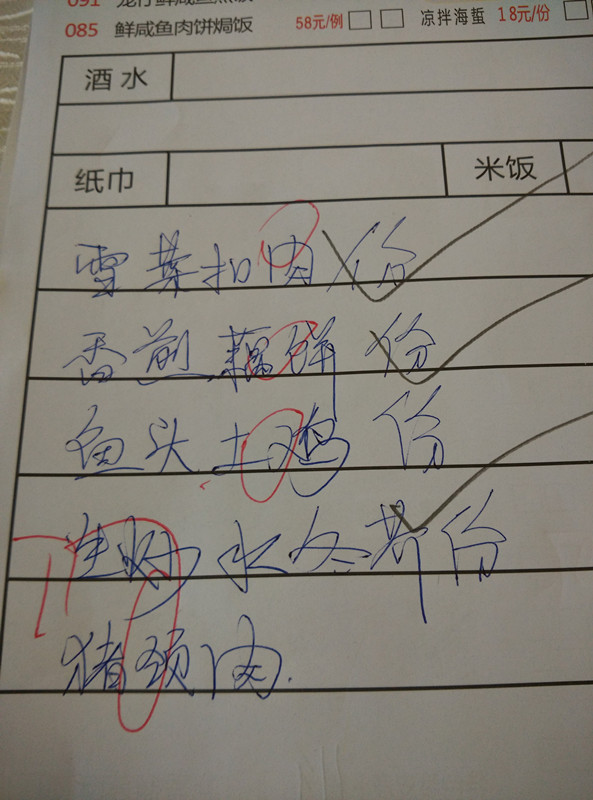 091
085 鲜咸鱼肉饼焗饭 58元/例 凉拌海蜇 18元/份
酒水
纸巾 米饭
雪菜扣肉 份
香煎藕饼 份
鱼头土鸡 份
生炒水冬 份
猪颈肉.